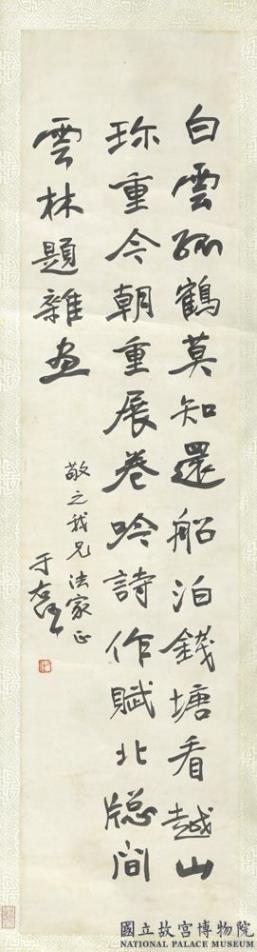 白雲孤鶴莫知還船泊錢塘看越山
珎重今朝重展卷吟詩作賦北窓間
雲林題雜画
敬之我兄法家正
于右任
國立故宮博物院
NATIONAL PALACE MUSEUM